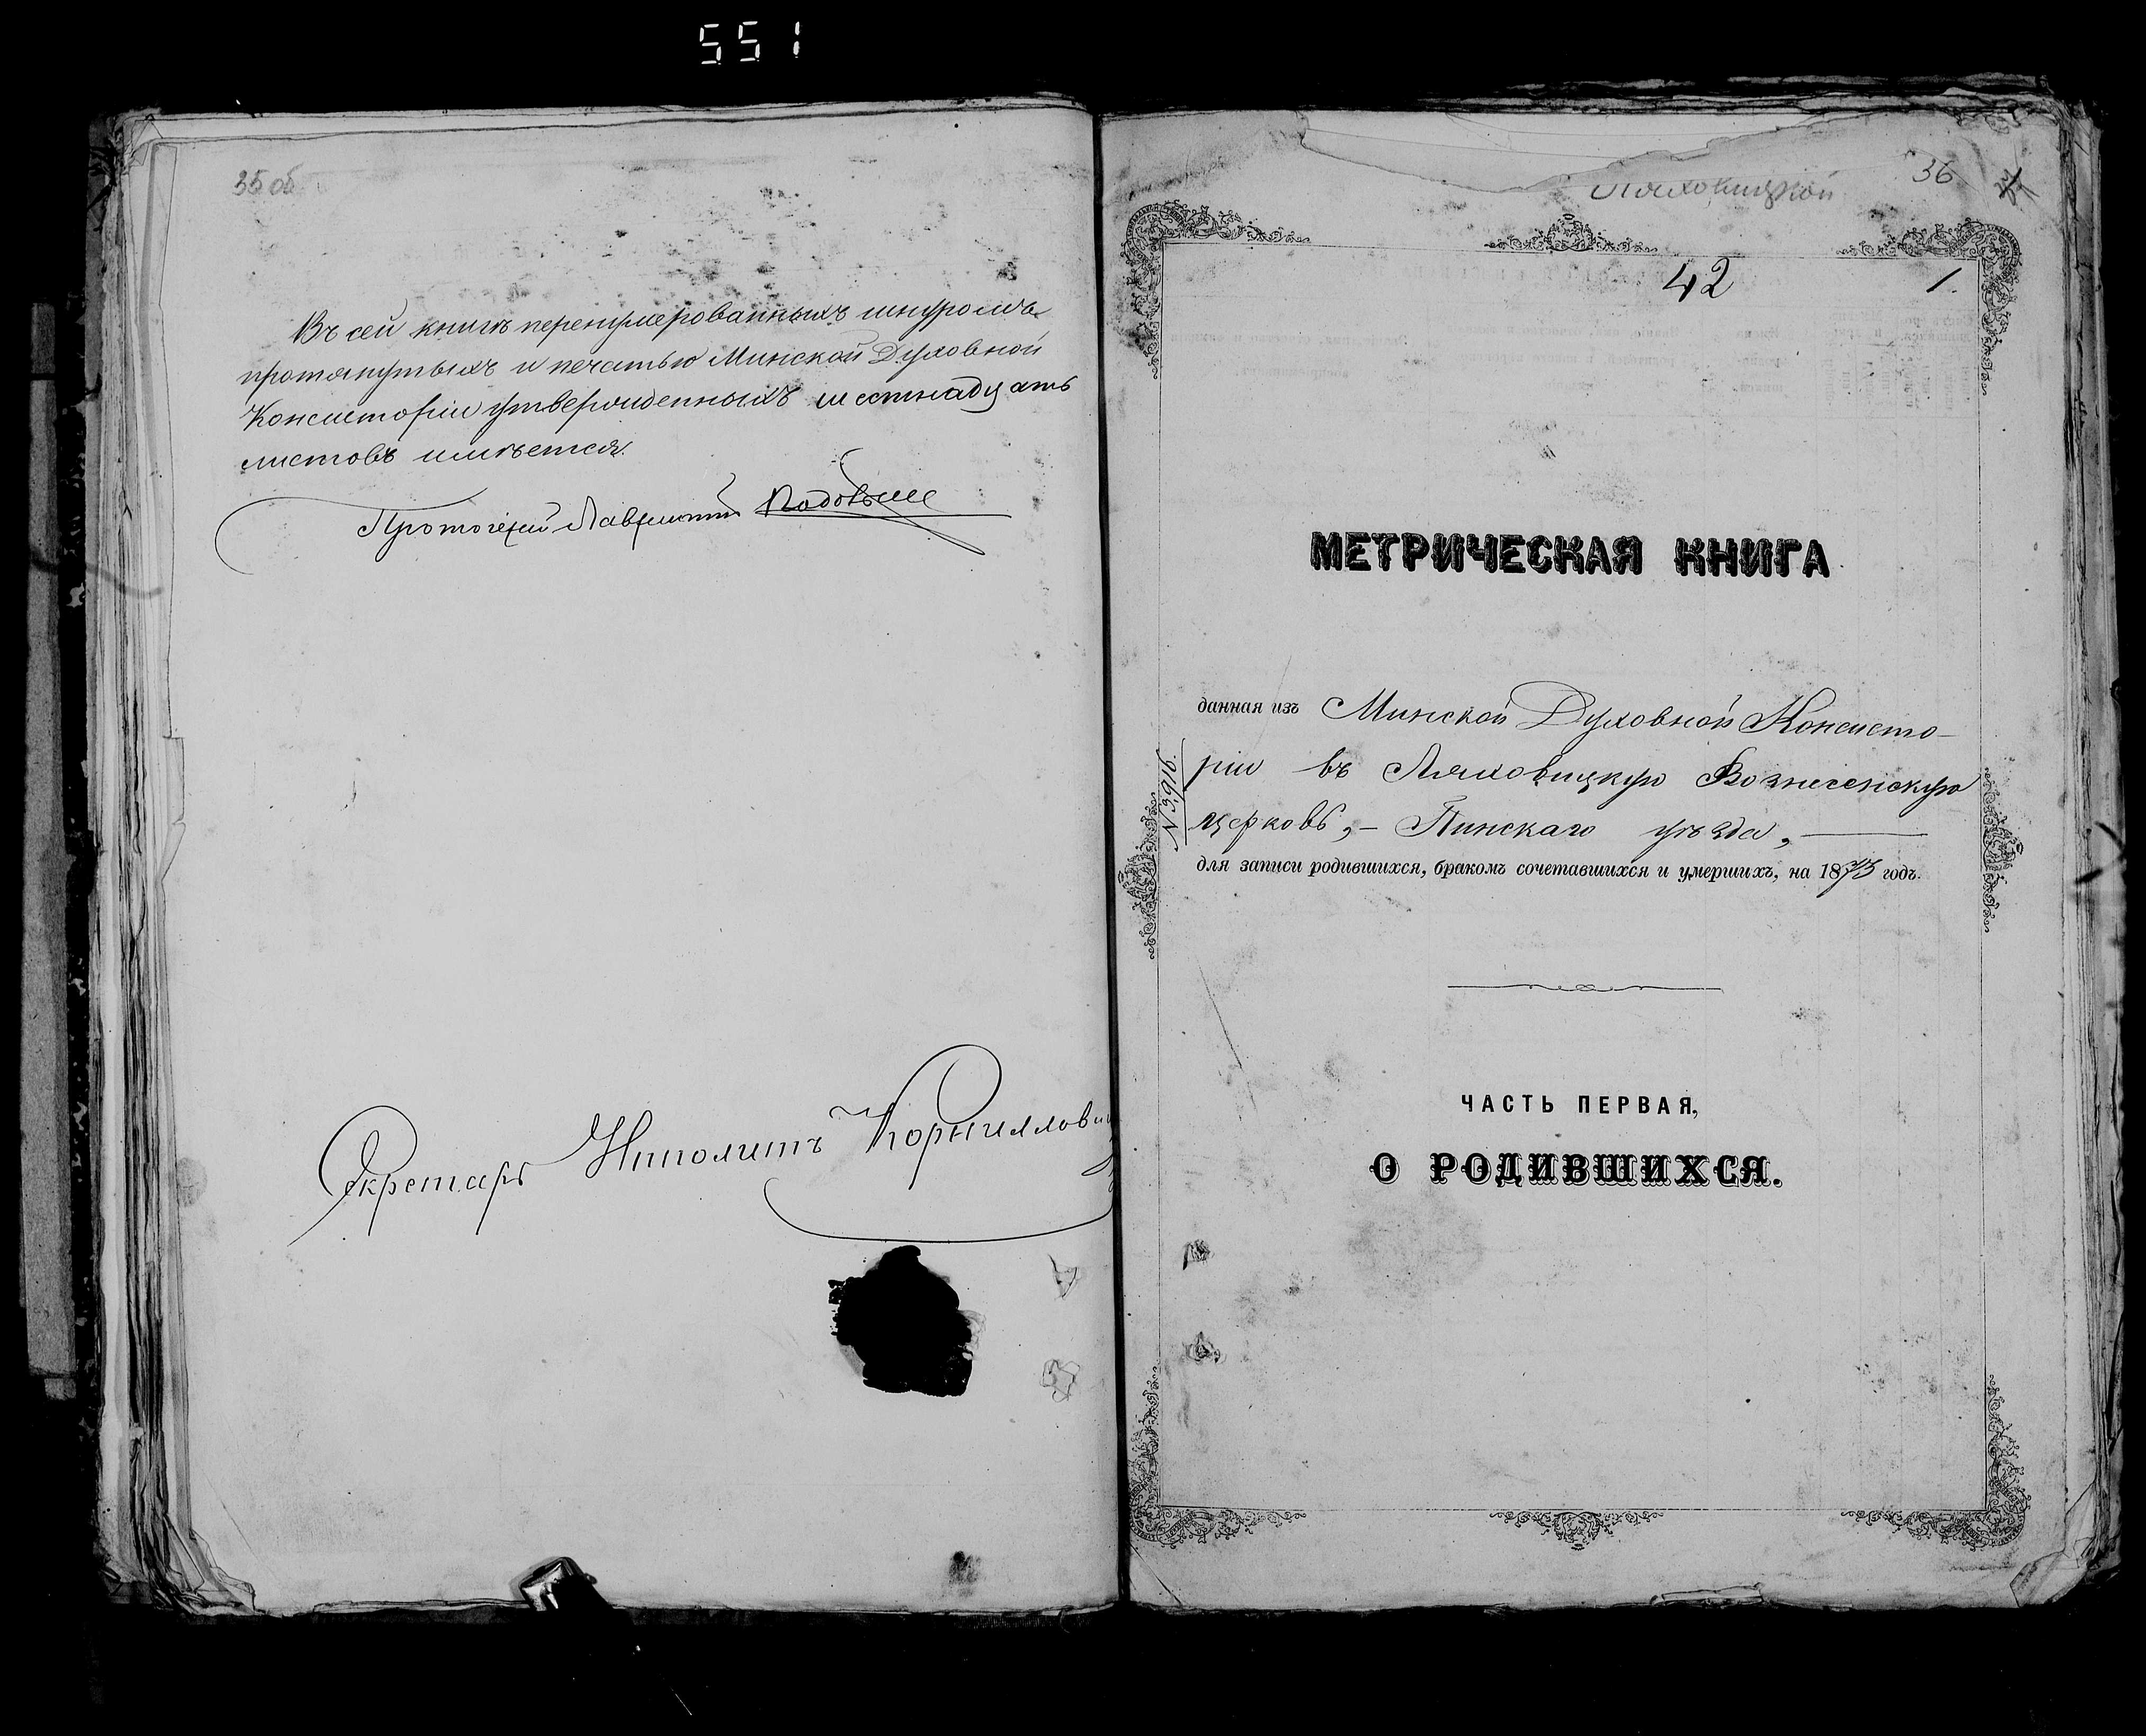 551
35 об
Въ сей книгѣ перенумерованныхъ шнуромъ
протянутыхъ и печатью Минской Духовной
Консисторіи утвержденныхъ шестнадцать
листовъ имѣется.
Протоіерей Лаврентій
Секретарь Ипполитъ Корнилловичъ
Ляховицкой
36
42
1.
МЕТРИЧЕСКАЯ КНИГА
данная изъ Минской Духовной Консисто-
ріи въ Ляховицкую Вознесенскую
церковь, – Пинскаго уѣзда,
№ 3916.
для записи родившихся, бракомъ сочетавшихся и умершихъ, на 1873 годъ.
ЧАСТЬ ПЕРВАЯ,
О РОДИВШИХСЯ.